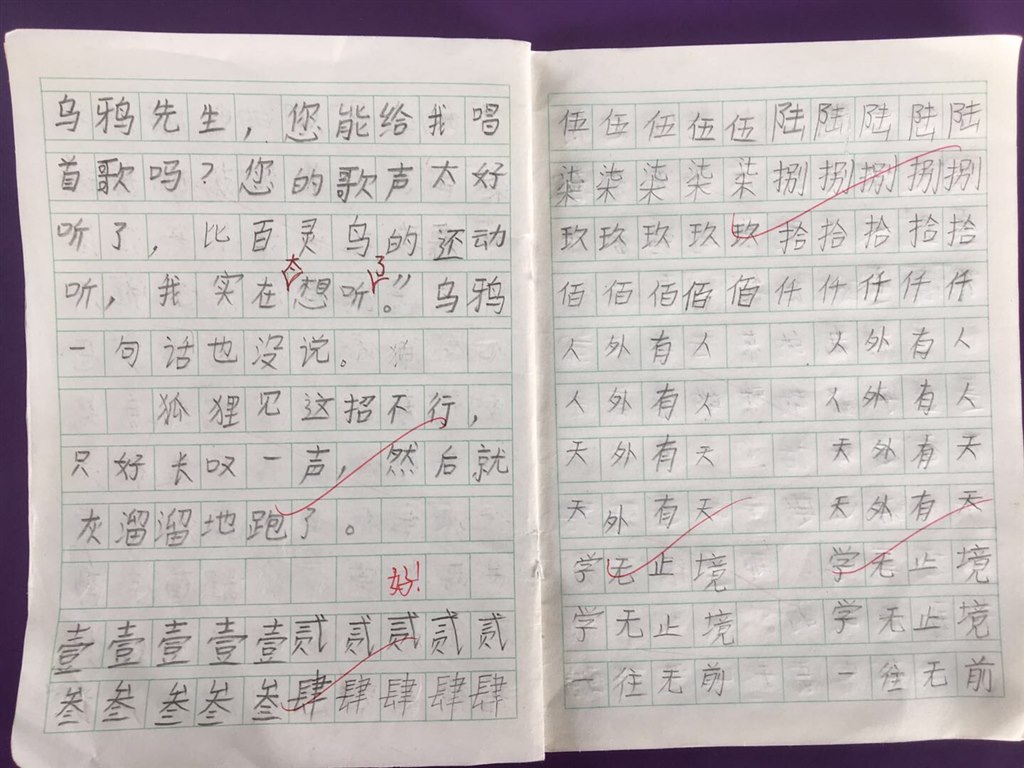 乌鸦先生，您能给我唱
首歌吗？您的歌声太好
听了，比百灵鸟的还动
太 了
听，我实在想听。”乌鸦
一句话也没说。
狐狸见这招不行，
只好长叹一声，然后就
灰溜溜地跑了。
好！
壹壹壹壹壹贰贰贰贰贰
叁叁叁叁叁肆肆肆肆肆
伍伍伍伍伍陆陆陆陆陆
柒柒柒柒柒捌捌捌捌捌
玖玖玖玖玖拾拾拾拾拾
佰佰佰佰佰仟仟仟仟仟
人外有人 人外有人
人外有人 人外有人
天外有天 天外有天
天外有天 天外有天
学无止境 学无止境
学无止境 学无止境
一往无前 一往无前